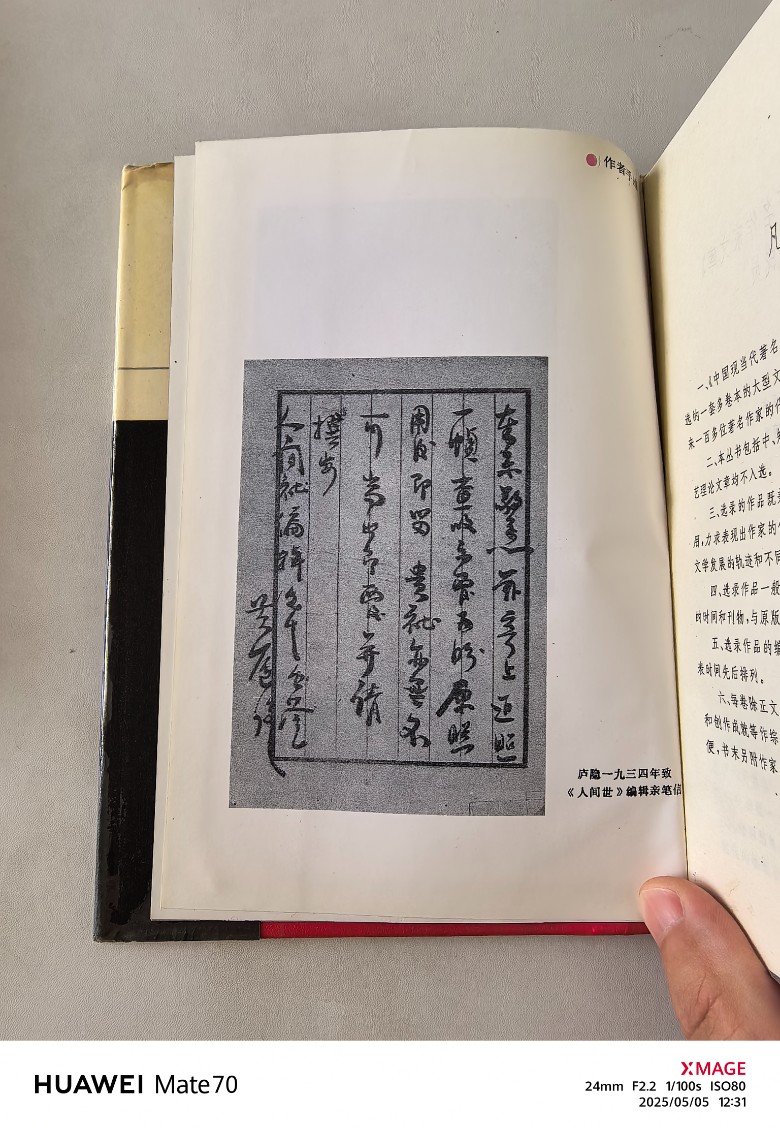 作者手
在
兹寄上近照
一帧
照
用后即留 贵社亦无不
可 耑此即
并请
撰安
人间社编辑先生台鉴
黄庐隐
庐隐一九三四年致
《人间世》编辑亲笔信
凡
一、《中国现当代著名
选的一套多卷本的大型文
来一百多位著名作家的代
二、本丛书包括中、
艺理论文章均不入选。
三、选录的作品既
用,力求表现出作家的
文学发展的轨迹和不同
四、选录作品一般
的时间和刊物,与原版
五、选录作品的编
表时间先后排列。
六、每卷除正文
和创作成就等作综
便,书末另附作家
HUAWEI Mate70
XMAGE
24mm F2.2 1/100s ISO80
2025/05/05 12:31